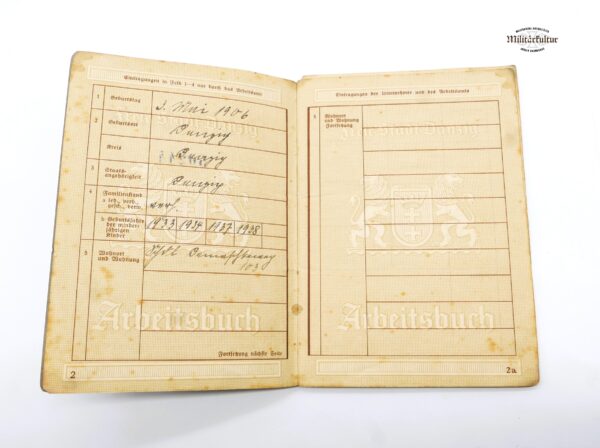 Militärkultur
Eintragungen in Feld 1–4 nur durch das Arbeitsamt
1 Geburtstag
3. Mai 1906
2 Geburtsort
Danzig
Kreis
Danzig
3 Staats-
angehörigkeit
Danzig
4 Familienstand
a led., verh.,
gesch., verw.
verh.
b Geburtsjahre
der minder-
jährigen
Kinder
1933 1934 1937 1938
5 Wohnort
und Wohnung
103
Arbeitsbuch
Fortsetzung nächste Seite
2
Eintragungen des Unternehmers und des Arbeitsamts
Wohnort
und Wohnung
Fortsetzung
Freie Stadt Danzig
Arbeitsbuch
2a